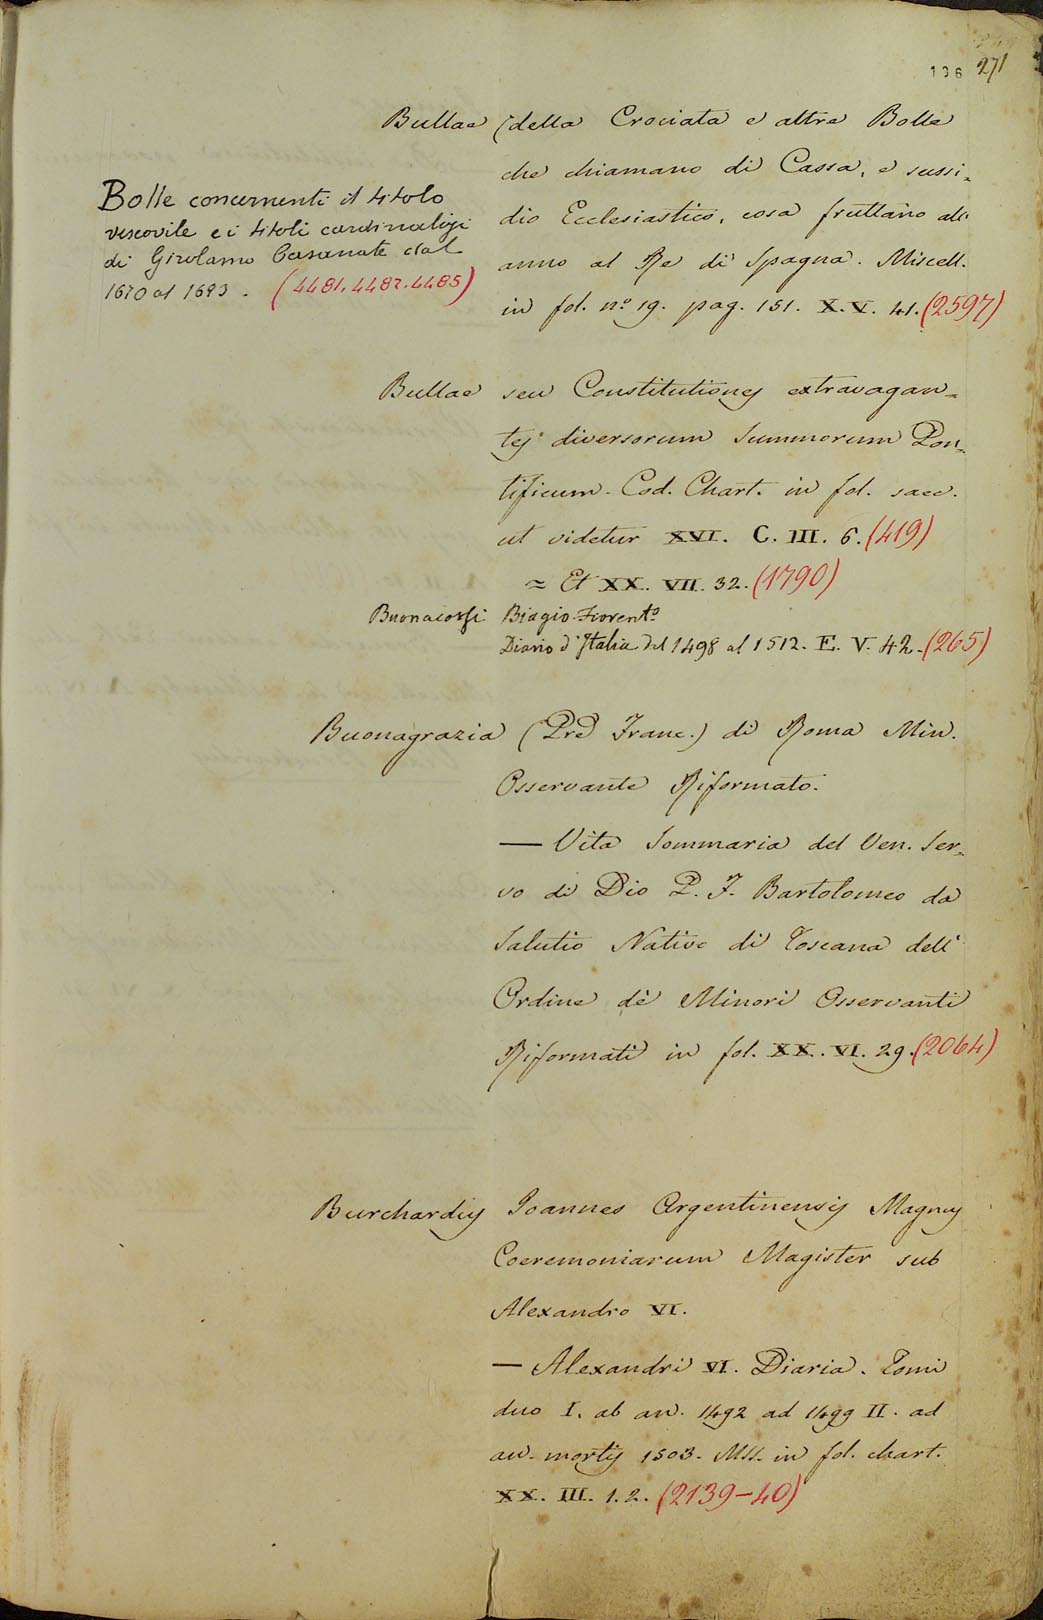 136 271
Bullae (della Crociata e altre Bolle
che chiamano di Cassa, e sussi-
dio Ecclesiastico, cosa fruttano all'
anno al Re di Spagna. Miscell.
in fol. nº 19. pag. 151. X. V. 41. (2597)
Bolle concernenti il titolo
vescovile e i titoli cardinalizi
di Girolamo Casanate dal
1670 al 1693. (4481. 4482. 4485)
Bullae seu Constitutiones extravagan-
tes diversorum Summorum Pon-
tificum. Cod. Chart. in fol. saec.
ut videtur XVI. C. III. 6. (419)
≈ Et XX. VII. 32. (1790)
Buonacorsi Biagio Fiorentº
Diario d'Italia dal 1498 al 1512. E. V. 42. (265)
Buonagrazia (Pre Franc.) di Roma Min.
Osservante Riformato.
— Vita Sommaria del Ven. Ser-
vo di Dio P. F. Bartolomeo da
Salutio Nativo di Toscana dell'
Ordine de' Minori Osservanti
Riformati in fol. XX. VI. 29. (2064)
Burchardus Joannes Argentinensis Magnus
Coeremoniarum Magister sub
Alexandro VI.
— Alexandri VI. Diaria. Tomi
duo I. ab an. 1492 ad 1499 II. ad
an. mortis 1503. Mss. in fol. chart.
XX. III. 1. 2. (2139-40)